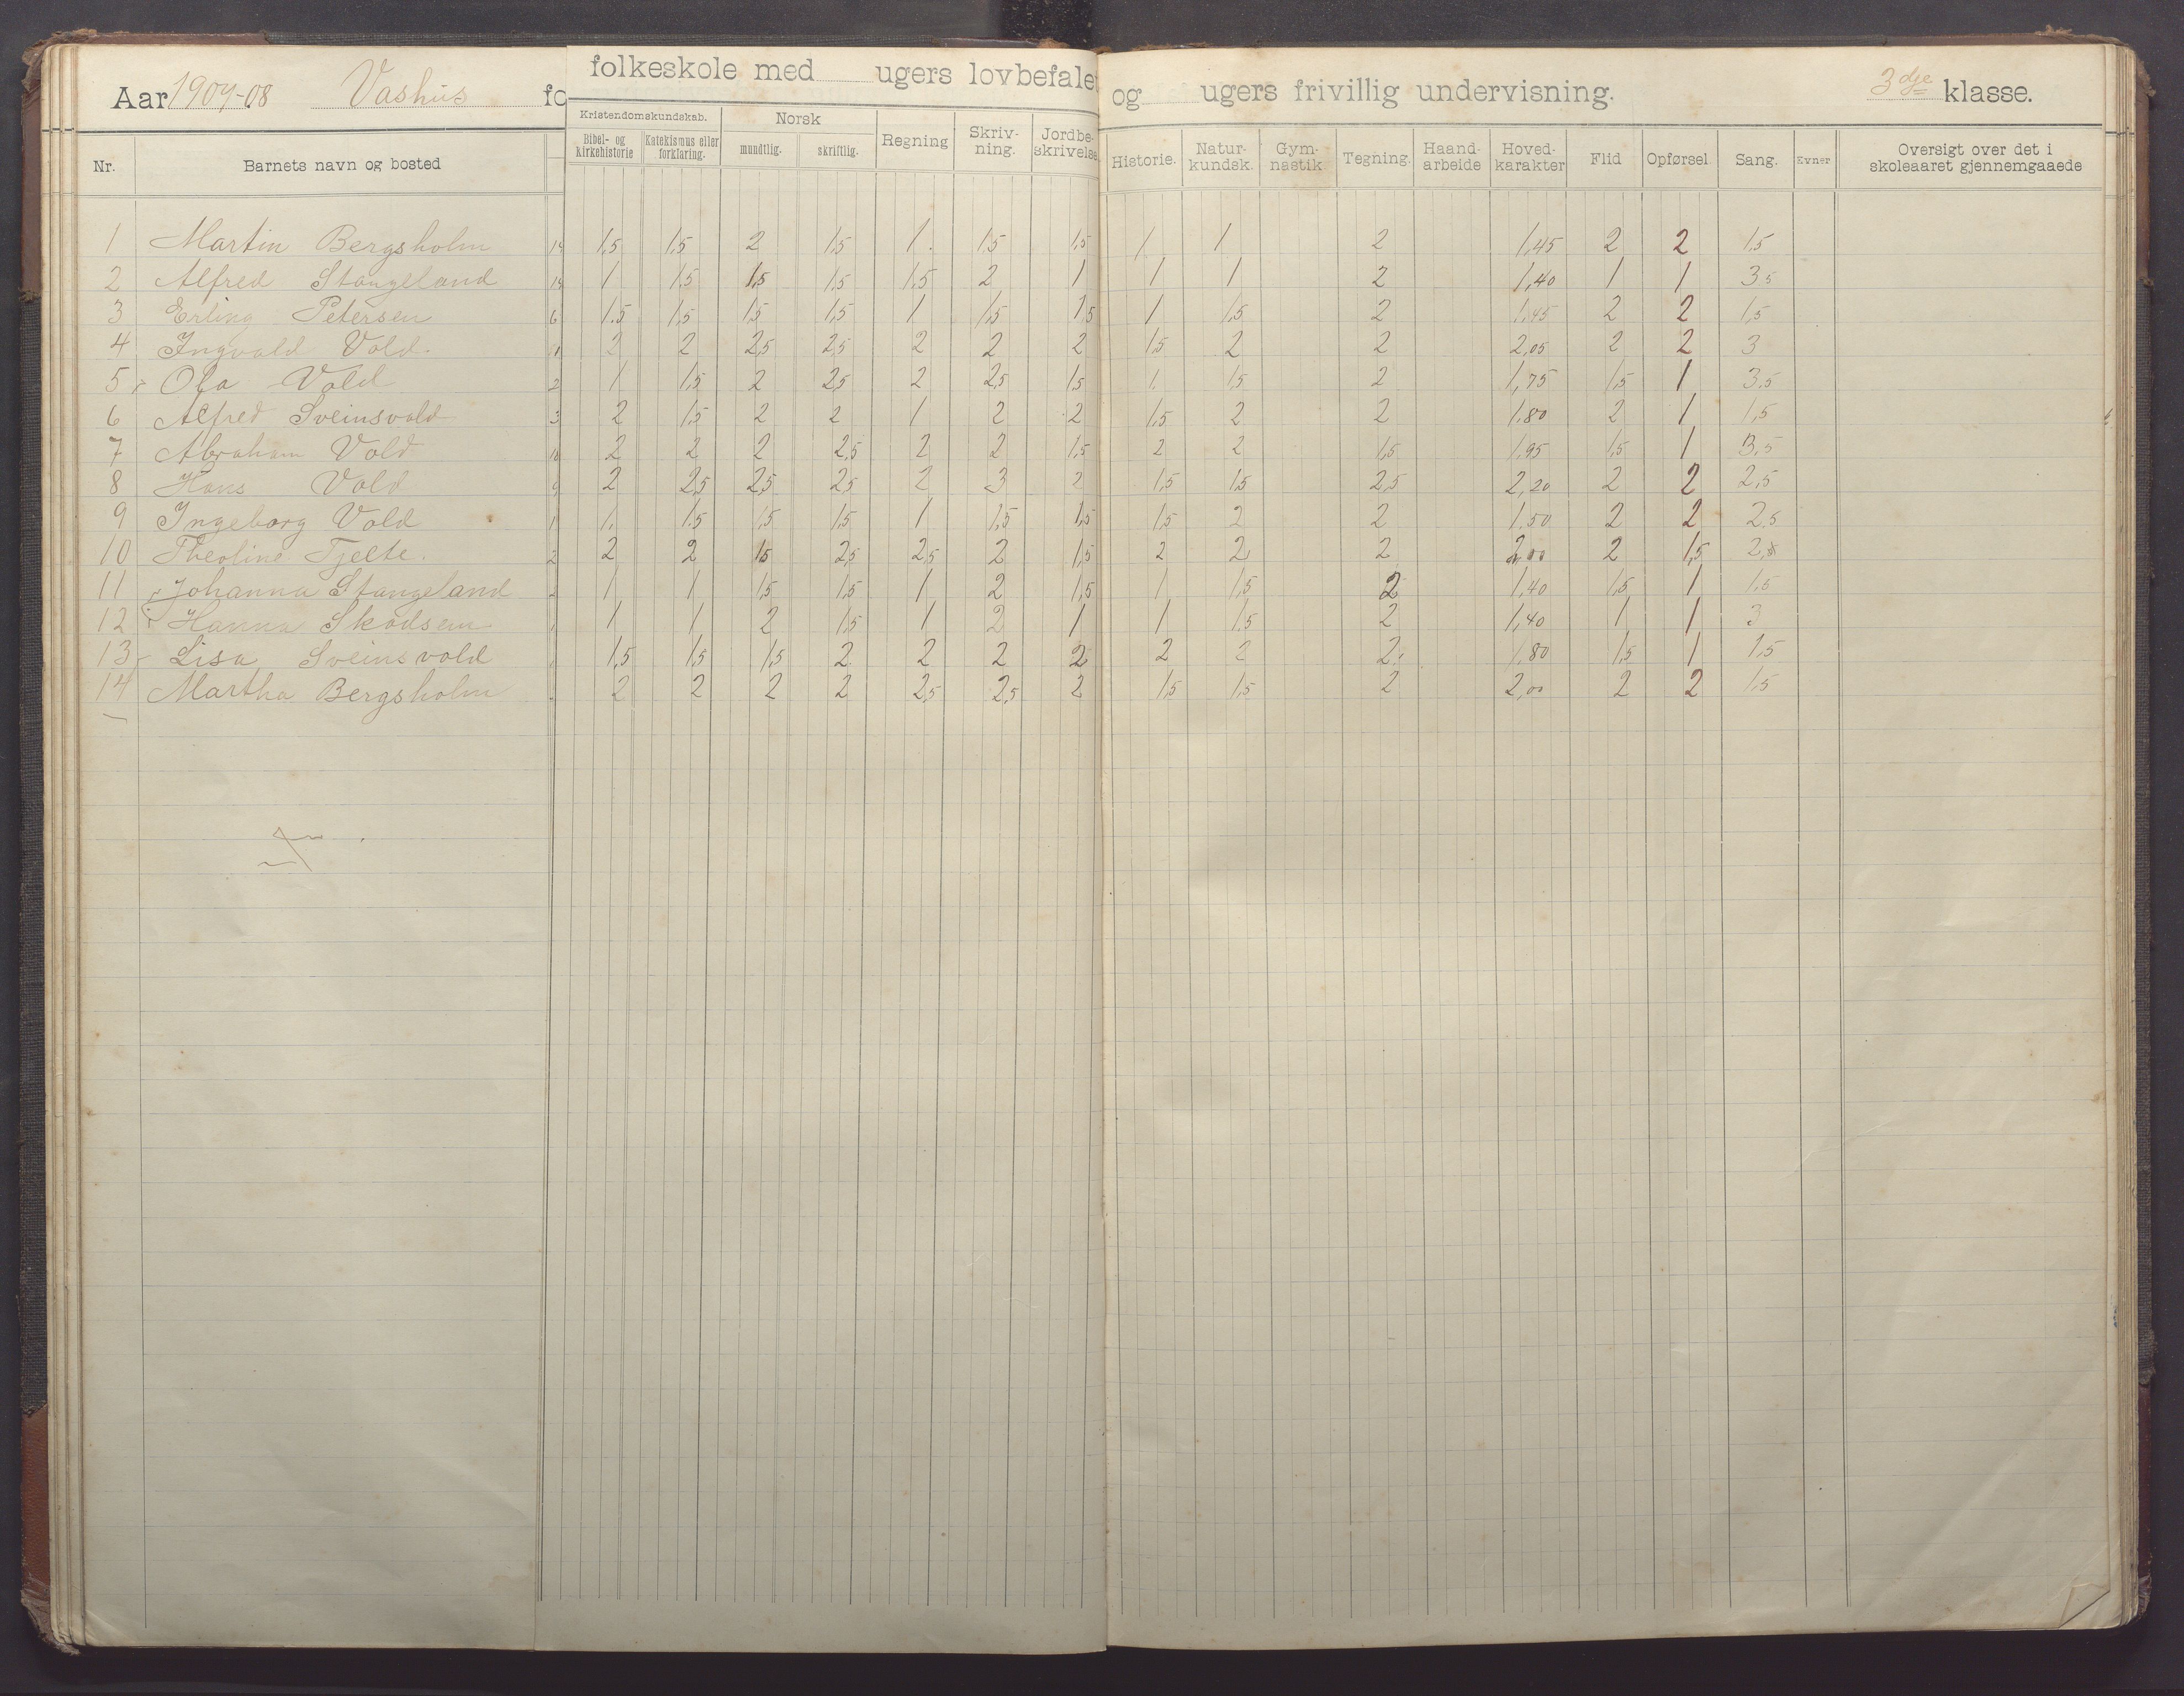 Aar 1907-08 Vashus fo folkeskole med ugers lovbefalet og ugers frivillig undervisning. 3dje klasse.
Nr. Barnets navn og bosted Kristendomskundskab. Bibel- og kirkehistorie Katekismus eller forklaring. Norsk mundtlig. skriftlig. Regning Skriv-ning. Jordbe-skrivelse Historie. Natur-kundsk. Gym-nastik Tegning. Haand-arbeide Hoved-karakter Flid Opførsel Sang. Evner Oversigt over det i skoleaaret gjennemgaaede
1 Martin Bergsholm 1,5 1,5 2 1,5 1. 1,5 1,5 1 1 2 1,45 2 2 1,5
2 Alfred Stangeland 1 1,5 1,5 1,5 1,5 2 1 1 1 2 1,40 1 1 3,5
3 Erling Petersen 6 1.5 1,5 1,5 1,5 1 1,5 1,5 1 1,5 2 1,45 2 2 1,5
4 Ingvald Vold. 2 2 2,5 2,5 2 2 2 1,5 2 2 2,05 2 2 3
5 Ola Vold 2 1 1,5 2 2,5 2 2,5 1,5 1. 1,5 2 1,75 1,5 1 3.5
6 Alfred Sveinsvold 3 2 1,5 2 2 1 2 2 1,5 2 2 1.80 2 1 1,5
7 Abraham Vold 2 2 2 2,5 2 2 1,5 2 2 1,5 1,95 1,5 1 3,5
8 Hans Vold 2 2,5 2,5 2,5 2 3 2 1,5 1,5 2,5 2,20 2 2 2,5
9 Ingeborg Vold 1 1. 1.5 1,5 1,5 1 1,5 1,5 1,5 2 2 1.50 2 2 2.5
10 Theoline Tjelte. 2 2 2 1,5 2,5 2,5 2 1,5 2 2 2 2,00 2 1,5 2,5
11 Johanna Stangeland 2 1 1 1,5 1,5 1 2 1,5 1 1,5 2 1,40 1,5 1 1,5
12 Hanna Skadsem 1 1 1 2 1,5 1 2 1 1 1,5 2 1,40 1 1 3
13 Lisa Sveinsvold 1,5 1,5 1,5 2 2 2 2 2 2 2 1,80 1,5 1 1,5
14 Martha Bergsholm 2 2 2 2 2,5 2,5 2 1,5 1,5 2 2,00 2 2 1,5